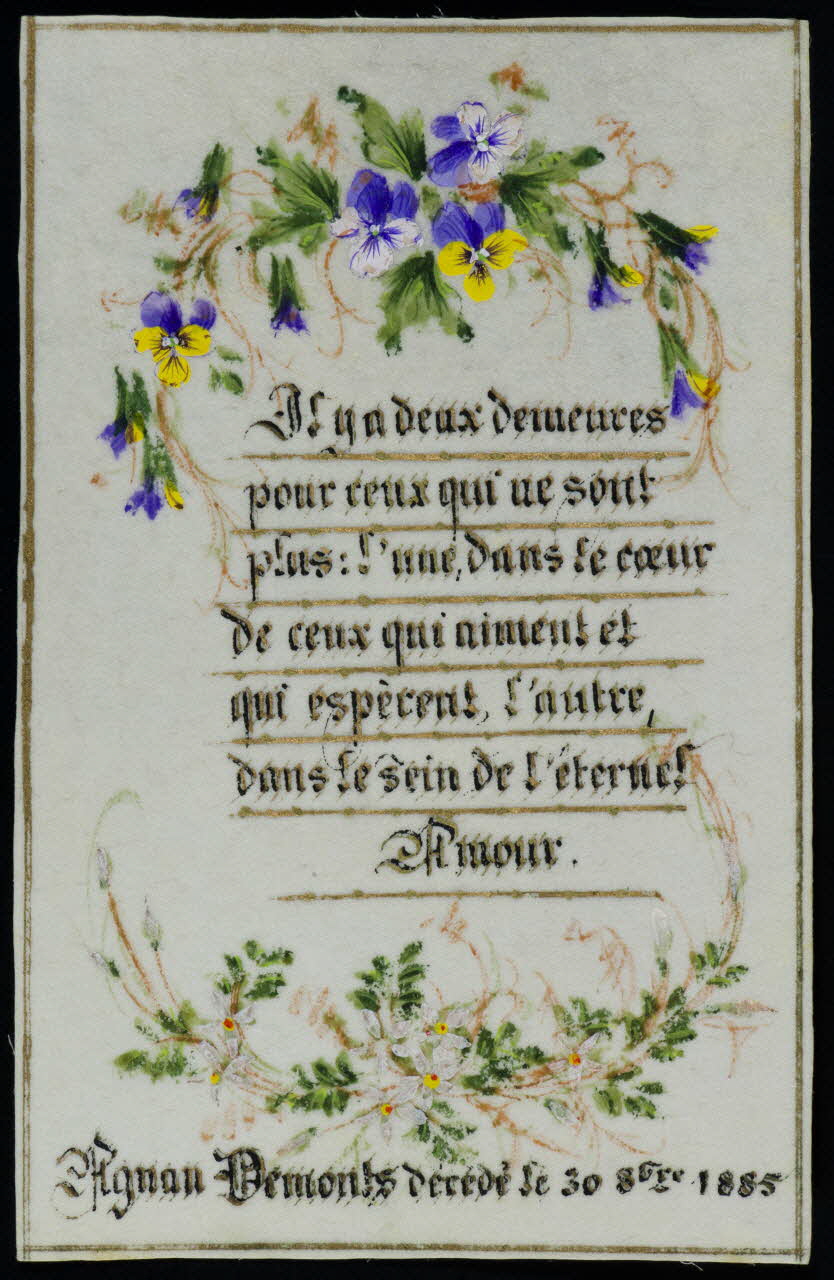 Il y a deux demeures
pour ceux qui ne sont
plus : l'une, dans le cœur
de ceux qui aiment et
qui espèrent, l'autre,
dans le sein de l'éternel
Amour.
Agnan Demonts décédé le 30 8bre 1885